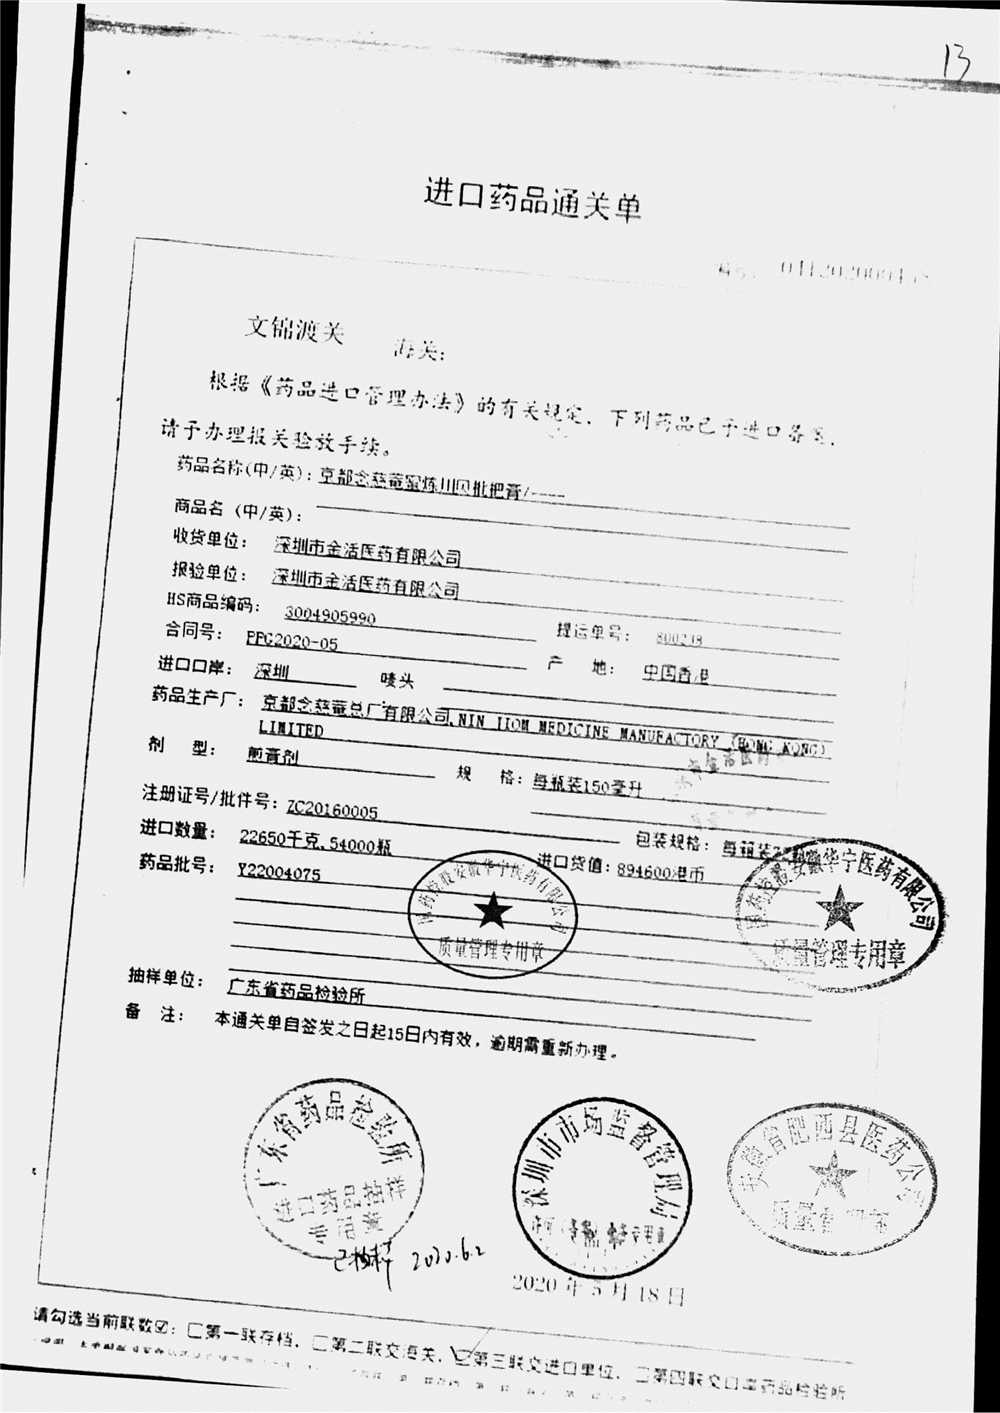 13
进口药品通关单
编号:
文锦渡关 海关:
根据《药品进口管理办法》的有关规定，下列药品已予进口备案，
请予办理报关验放手续。
药品名称(中/英): 京都念慈菴蜜炼川贝枇杷膏/----
商品名 (中/英):
收货单位: 深圳市金活医药有限公司
报验单位: 深圳市金活医药有限公司
HS商品编码: 3004905990 提运单号:
合同号: PFG2020-05 产 地: 中国香港
进口口岸: 深圳 唛头
药品生产厂: 京都念慈菴总厂有限公司,NIN JIOM MEDICINE MANUFACTORY (HONG KONG)
LIMITED
剂 型: 煎膏剂 规 格: 每瓶装150毫升
注册证号/批件号: ZC20160005 包装规格: 每箱装
进口数量: 22650千克,54000瓶 进口货值: 894600港币
药品批号: Y22004075
国药控股安徽华宁医药有限公司
质量管理专用章
国药控股安徽华宁医药有限公司
质量管理专用章
抽样单位: 广东省药品检验所
备 注: 本通关单自签发之日起15日内有效，逾期需重新办理。
广东省药品检验所
进口药品抽样
专用章
已抽样 2020.6.2
深圳市市场监督管理局
专用章
2020 年 5 月 18 日
安徽省肥西县医药公司
质量管
请勾选当前联数☑: □第一联存档, □第二联交海关, ☑第三联交进口单位, □第四联交口岸药品检验所